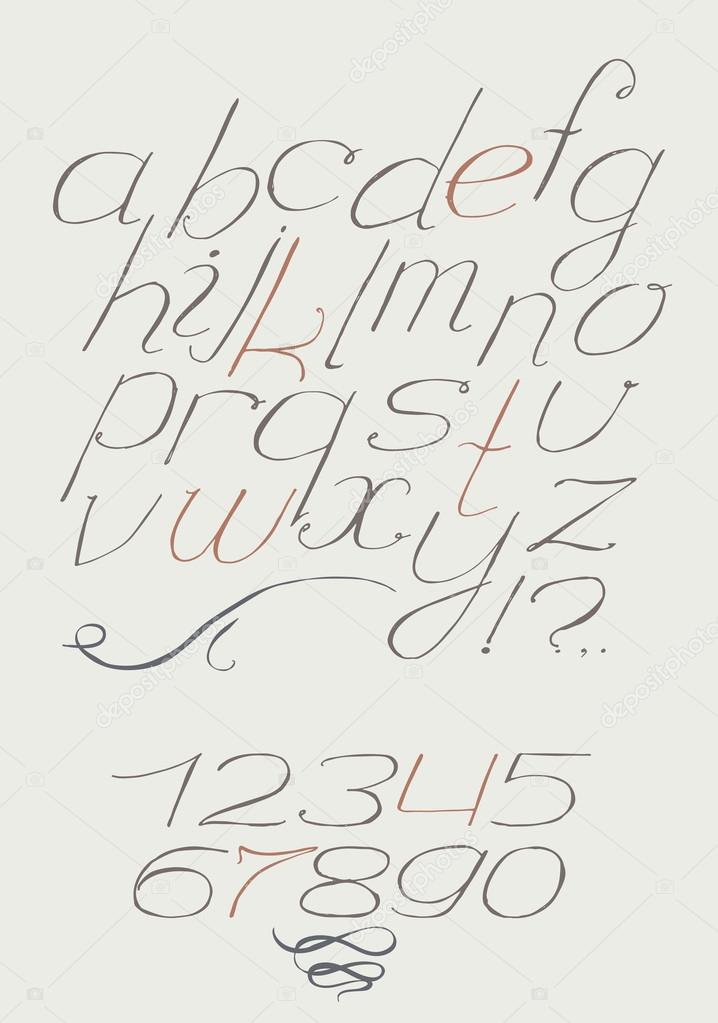 abcdefg
hijklmno
prqstu
vwxyz
!?,.
12345
67890
depositphotos